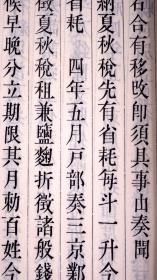 右合有移改卽須具事由奏聞
納夏秋稅先有省耗每斗一升今
省耗　四年五月戶部奏三京鄴
徵夏秋稅租兼鹽麴折徵諸般錢
候早晚分立期限其月勅百姓今